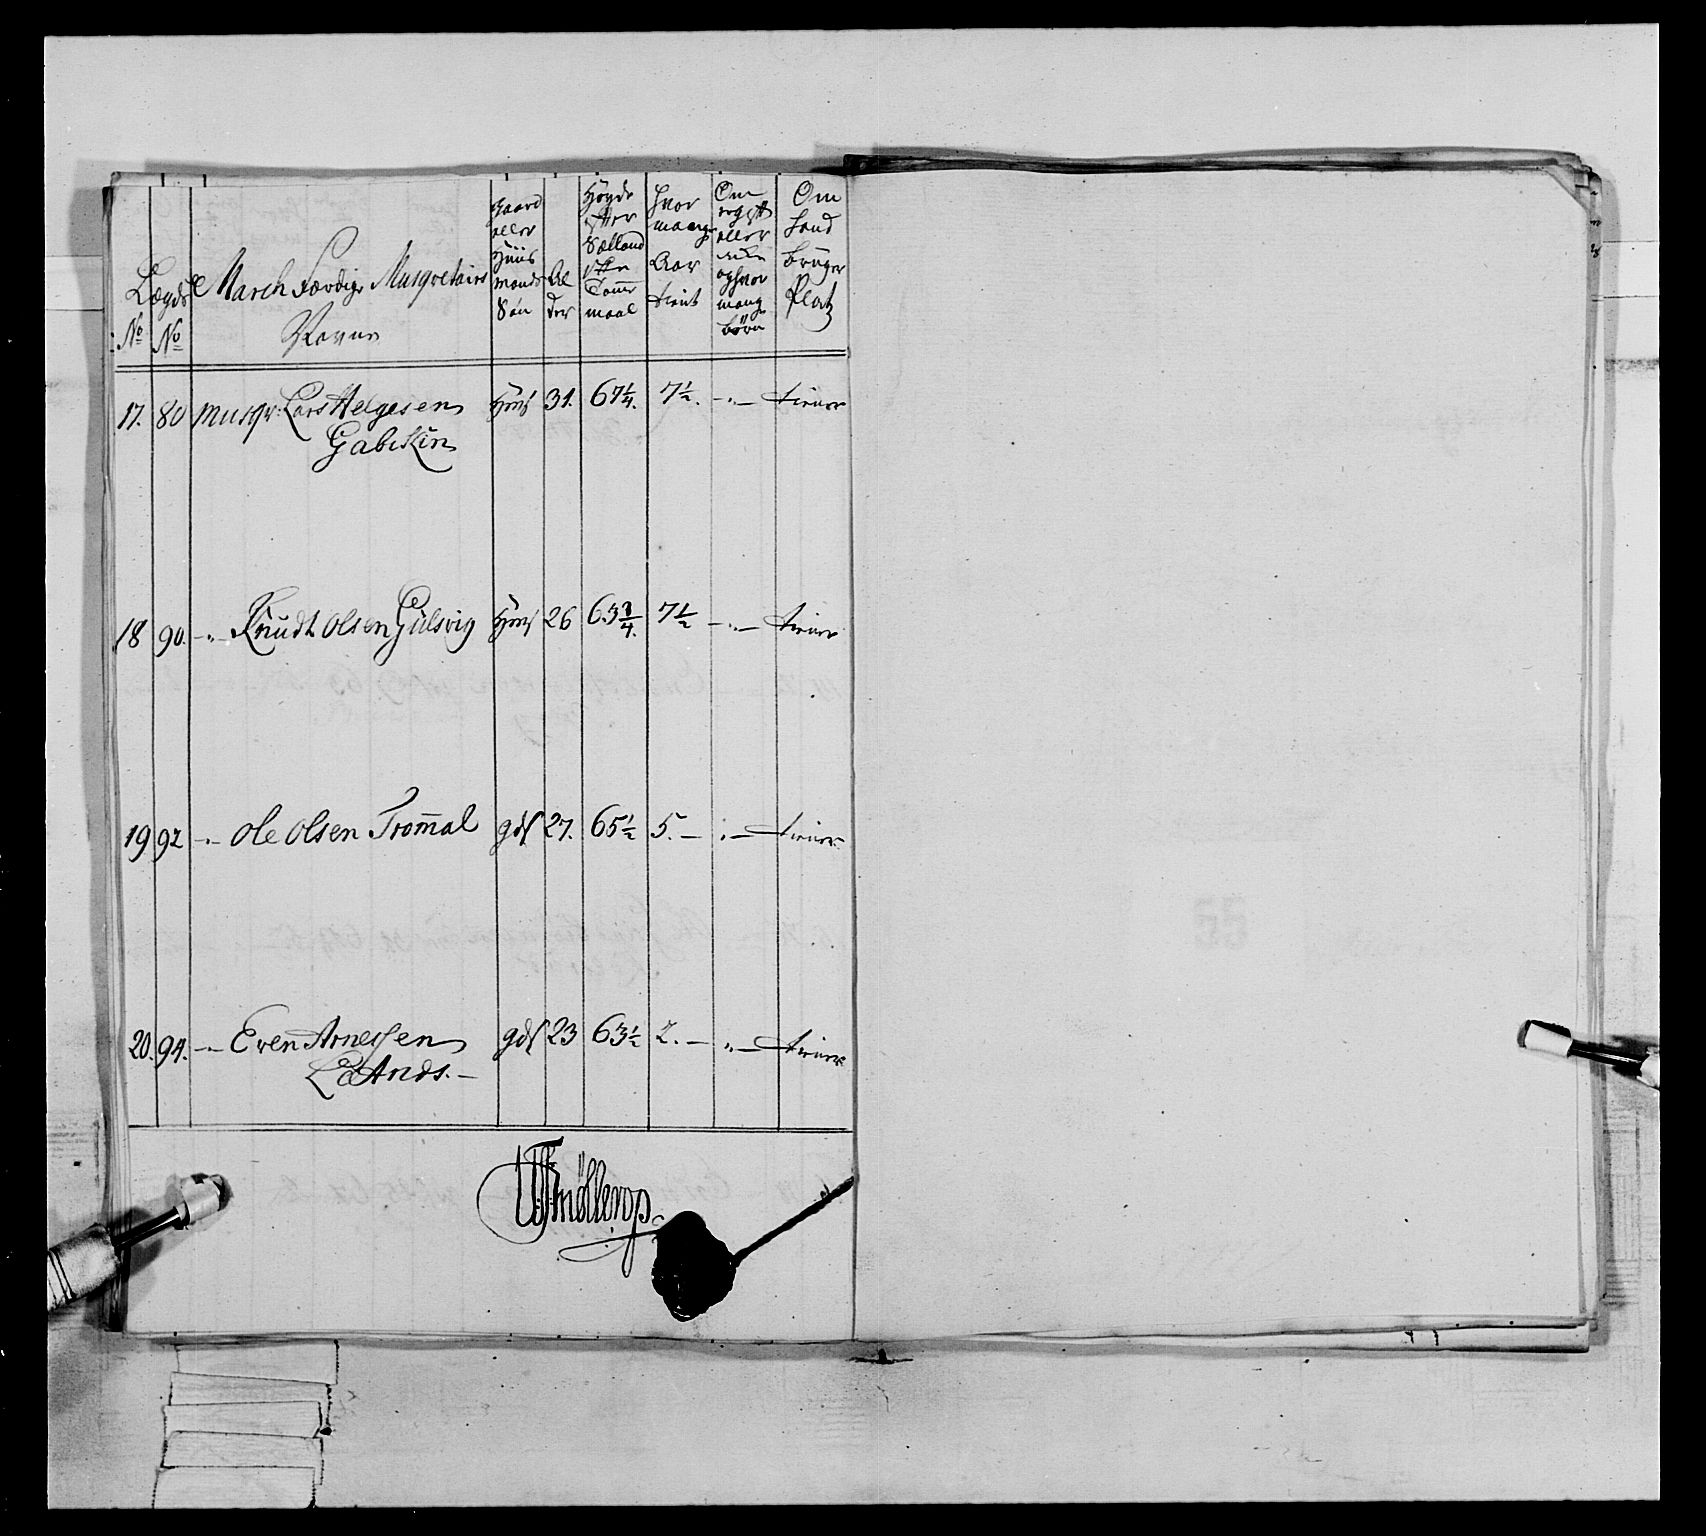 No
Lægds No
March Færdige Musqvetairs Navne
Gaard eller Huus Mands Søn
Al der
Høyde efter Sælland ske Tomme maal
Hvor mange Aar tient
Om ægtt eller ei ophvor mange børn
Om hand bruger Platz
17. 80 Musqv: Lars Helgesen Huus 31. 67 1/4. 7 1/2. -"- tiener
Gabeskin
18 90. -"- Knudt Olsen Gulsvig Huus 26 63 3/4. 7 1/2 -"- tiener
19 92 -"- Ole Olsen Trom̄al gds 27. 65 1/2 5. - "- tiener
20. 94. -"- Even Arnessen gds 23 63 1/2 2. - "- tiener